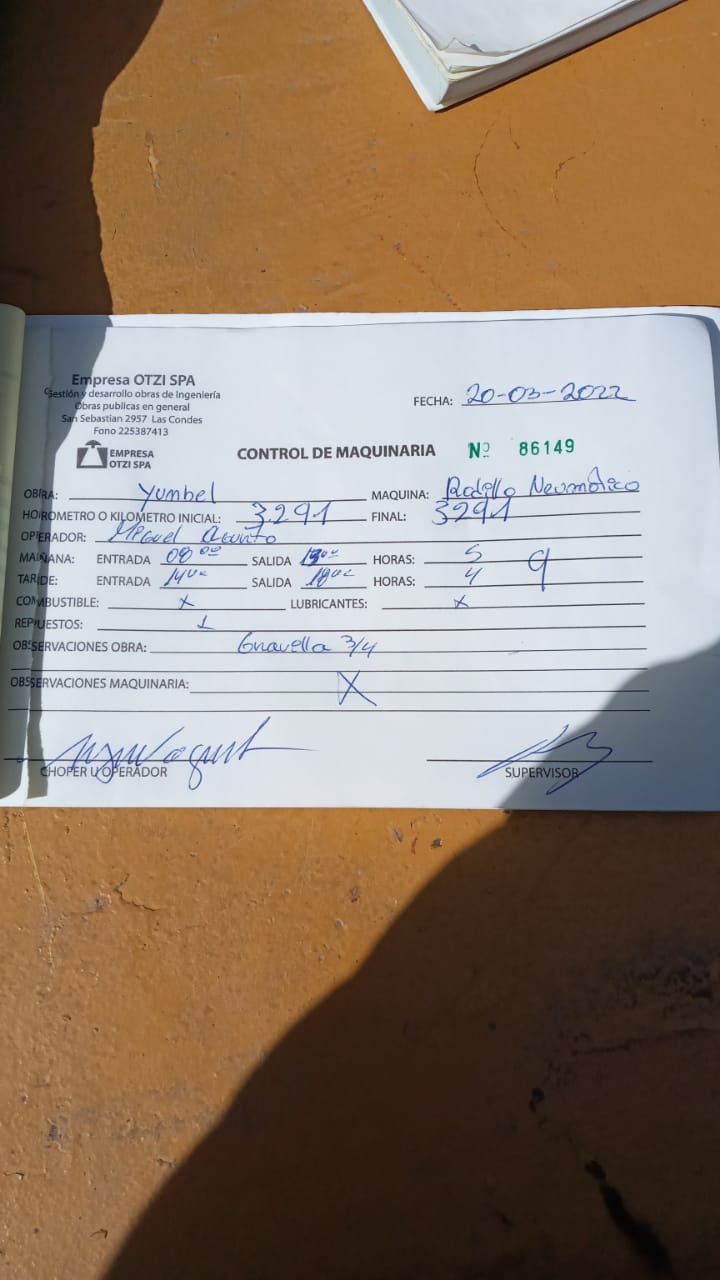 Empresa OTZI SPA
Gestión y desarrollo obras de Ingeniería
Obras publicas en general
San Sebastian 2957 Las Condes
Fono 225387413
EMPRESA
OTZI SPA
FECHA: 20-03-2022
CONTROL DE MAQUINARIA Nº 86149
OBRA: Yumbel MAQUINA: Rodillo Neumático
HOROMETRO O KILOMETRO INICIAL: 3291 FINAL: 3291
OPERADOR: Miguel
MAÑANA: ENTRADA 08 00 SALIDA 13 00 HORAS: 5
TARDE: ENTRADA 14 00 SALIDA 18 00 HORAS: 4 9
COMBUSTIBLE: x LUBRICANTES: x
REPUESTOS: 1
OBSERVACIONES OBRA: Gravella 3/4
OBSERVACIONES MAQUINARIA: X
CHOFER U OPERADOR SUPERVISOR